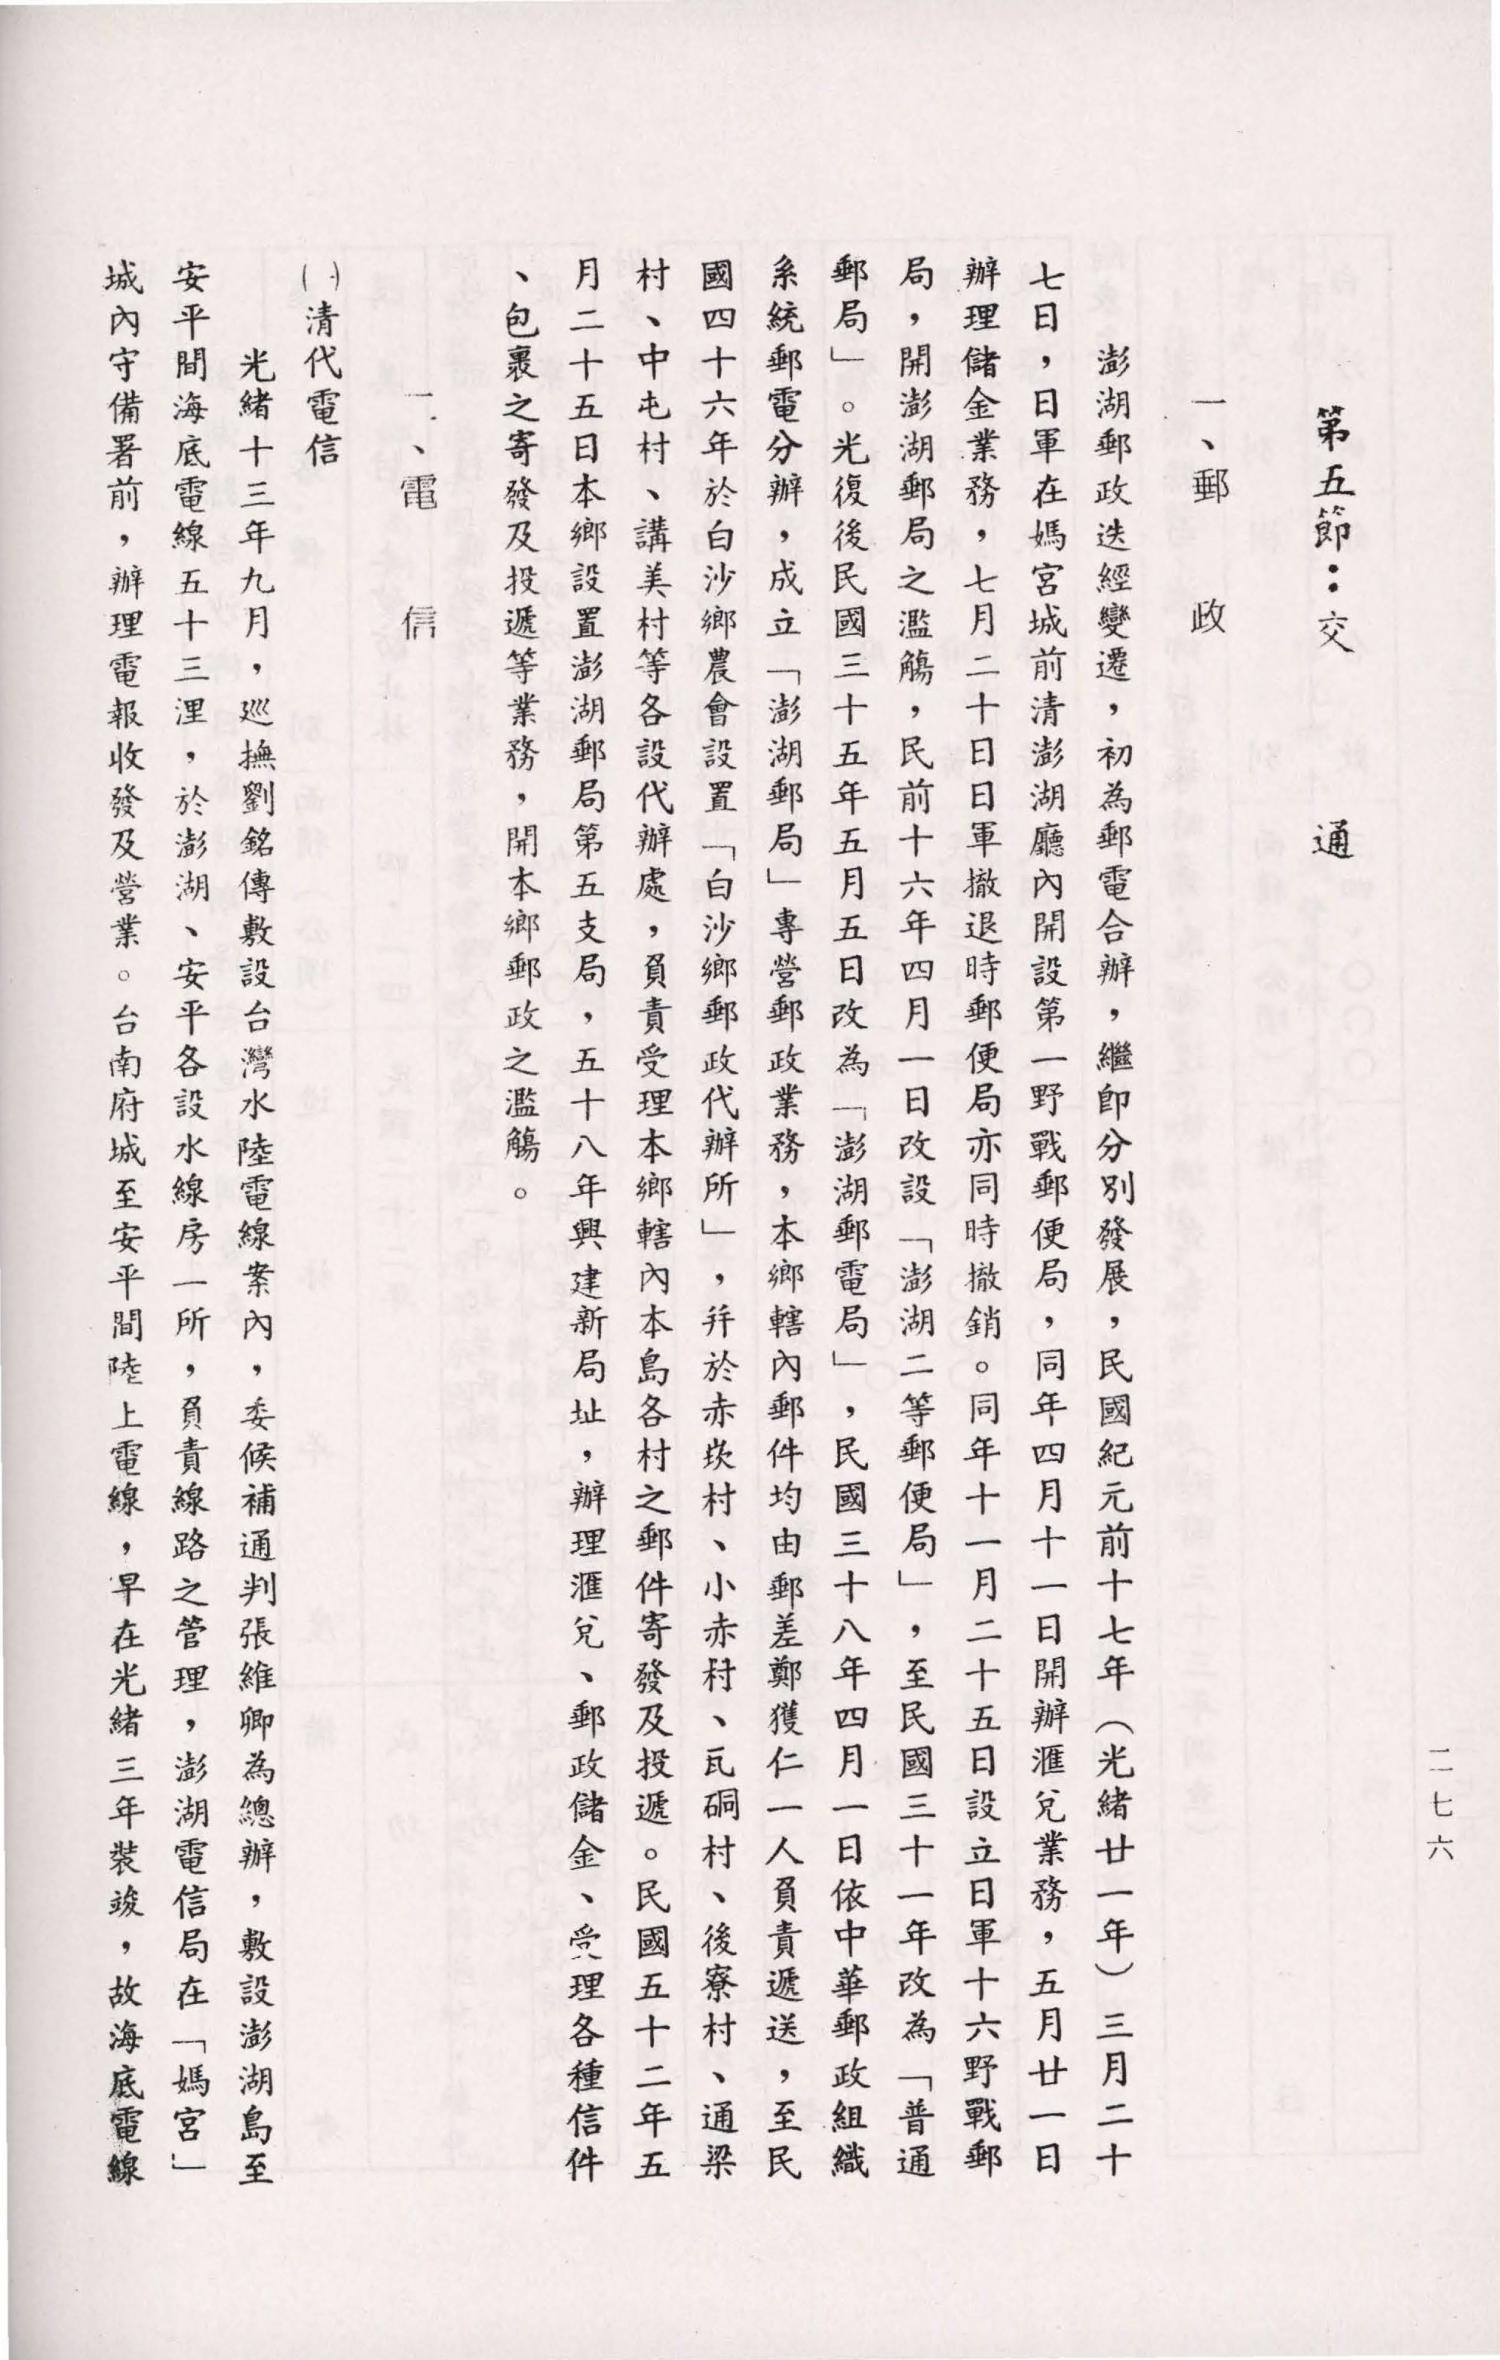 二七六
第五節：交　通
一、郵　政
澎湖郵政迭經變遷，初為郵電合辦，繼卽分別發展，民國紀元前十七年（光緒廿一年）三月二十
七日，日軍在媽宮城前清澎湖廳內開設第一野戰郵便局，同年四月十一日開辦滙兌業務，五月廿一日
辦理儲金業務，七月二十日日軍撤退時郵便局亦同時撤銷。同年十一月二十五日設立日軍十六野戰郵
局，開澎湖郵局之濫觴，民前十六年四月一日改設「澎湖二等郵便局」，至民國三十一年改為「普通
郵局」。光復後民國三十五年五月五日改為「澎湖郵電局」，民國三十八年四月一日依中華郵政組織
系統郵電分辦，成立「澎湖郵局」專營郵政業務，本鄉轄內郵件均由郵差鄭獲仁一人負責遞送，至民
國四十六年於白沙鄉農會設置「白沙鄉郵政代辦所」，幷於赤崁村、小赤村、瓦硐村、後寮村、通梁
村、中屯村、講美村等各設代辦處，負責受理本鄉轄內本島各村之郵件寄發及投遞。民國五十二年五
月二十五日本鄉設置澎湖郵局第五支局，五十八年興建新局址，辦理滙兌、郵政儲金、受理各種信件
、包裹之寄發及投遞等業務，開本鄉郵政之濫觴。
一、電　信
㈠清代電信
光緒十三年九月，巡撫劉銘傳敷設台灣水陸電線案內，委候補通判張維卿為總辦，敷設澎湖島至
安平間海底電線五十三浬，於澎湖、安平各設水線房一所，負責線路之管理，澎湖電信局在「媽宮」
城內守備署前，辦理電報收發及營業。台南府城至安平間陸上電線，早在光緒三年裝竣，故海底電線